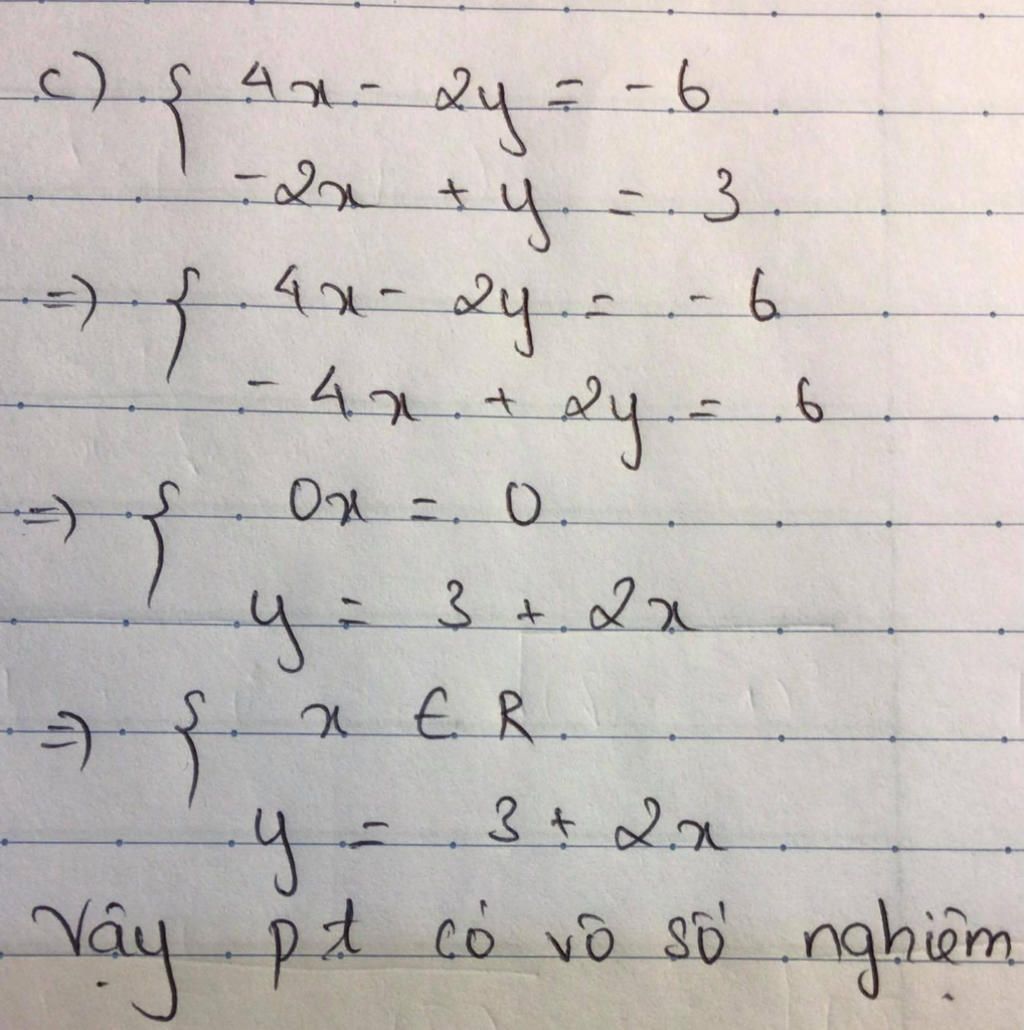 c) { 4x - 2y = -6
-2x + y = 3
=> { 4x - 2y = - 6
- 4x + 2y = 6
=> { 0x = 0
y = 3 + 2x
=> { x ∈ R
y = 3 + 2x
Vậy pt có vô số nghiệm